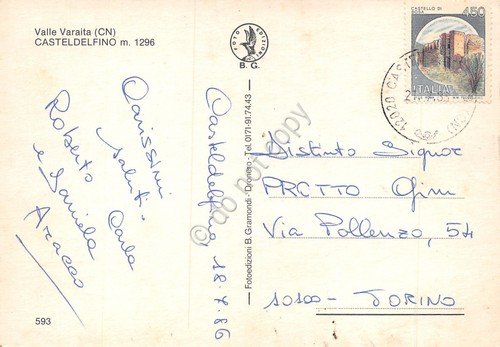 Valle Varaita (CN)
CASTELDELFINO m. 1296
FOTO EDIZIONI
B. G.
CASTELLO DI
450
ITALIA
12020 CAS
Casteldelfino, 18.7.86
Carissimi
saluti
Carla
Roberto
e Daniela
Fotoedizioni B. Gramondi - Dronero - Tel. 0171-91.74.43
do not copy
Distinto Signor
PROTTO Gim
Via Pollenzo, 54
10100 - TORINO
593